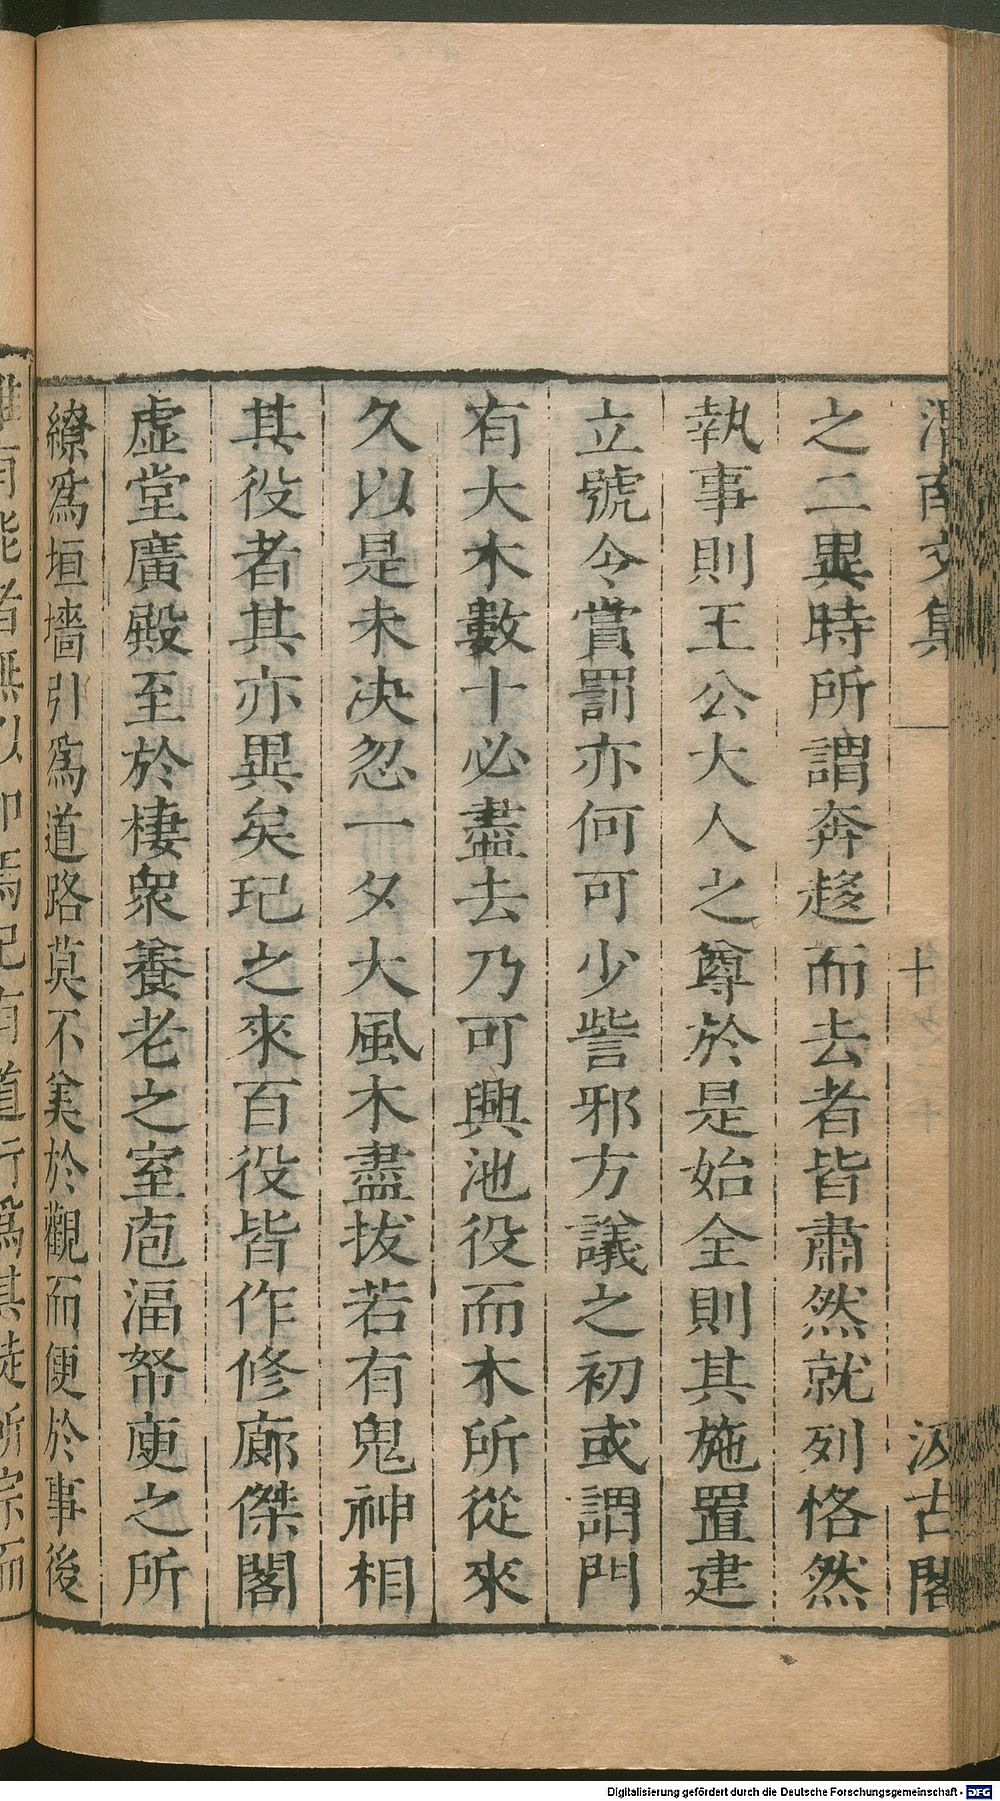 渭南文集 十 汲古閣
之二異時所謂奔趍而去者皆肅然就列恪然
執事則王公大人之尊於是始全則其施置建
立號令賞罰亦何可少訾邪方議之初或謂門
有大木數十必盡去乃可興池役而木所從來
久以是未決忽一夕大風木盡拔若有鬼神相
其役者其亦異矣玘之來百役皆作修廊傑閣
虛堂廣殿至於棲衆養老之室庖湢帑庾之所
繚爲垣墻引爲道路莫不美於觀而便於事後
雖有能者無以加焉玘有道行爲其徒所宗而
Digitalisierung gefördert durch die Deutsche Forschungsgemeinschaft - DFG